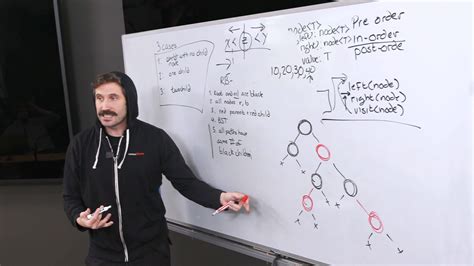 3 cases
1: node with no child
2: one child
3: two child
x < z < y
RB-
1. Root and nil are black
2. all nodes r, b
3. red parents + red child
4. BST
5. all paths have
same # of
black children
node<T>
left: node<T>
right: node<T>
value: T
10,20,30,40
Pre order
in-order
post-orde
left(node)
right(node)
visit(node)
x x x x x x x